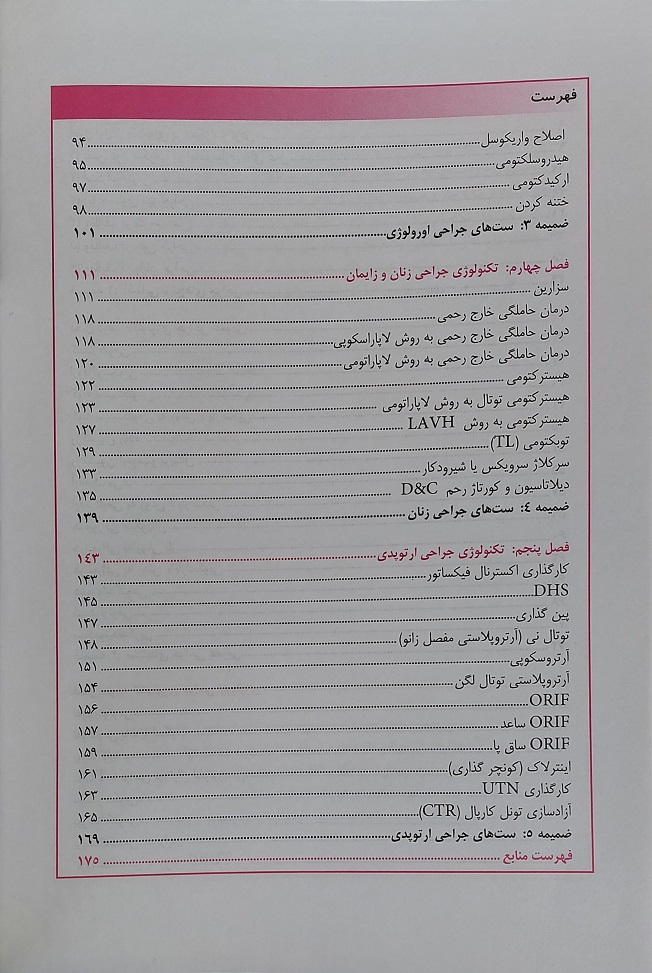 فهرست
اصلاح واریکوسل ۹۴
هیدروسلکتومی ۹۵
ارکیدکتومی ۹۷
ختنه کردن ۹۸
ضمیمه ۳: ست‌های جراحی اورولوژی ۱۰۱
فصل چهارم: تکنولوژی جراحی زنان و زایمان ۱۱۱
سزارین ۱۱۱
درمان حاملگی خارج رحمی ۱۱۸
درمان حاملگی خارج رحمی به روش لاپاراسکوپی ۱۱۸
درمان حاملگی خارج رحمی به روش لاپاراتومی ۱۲۰
هیسترکتومی ۱۲۲
هیسترکتومی توتال به روش لاپاراتومی ۱۲۳
هیسترکتومی به روش LAVH ۱۲۷
توبکتومی (TL) ۱۲۹
سرکلاژ سرویکس یا شیرودکار ۱۳۳
دیلاتاسیون و کورتاژ رحم D&C ۱۳۵
ضمیمه ٤: ست‌های جراحی زنان ۱۳۹
فصل پنجم: تکنولوژی جراحی ارتوپدی ۱٤۳
کارگذاری اکسترنال فیکساتور ۱۴۳
DHS ۱۴۵
پین گذاری ۱۴۷
توتال نی (آرتروپلاستی مفصل زانو) ۱۴۸
آرتروسکوپی ۱۵۱
آرتروپلاستی توتال لگن ۱۵۴
ORIF ۱۵۶
ORIF ساعد ۱۵۷
ORIF ساق پا ۱۵۹
اینترلاک (کونچر گذاری) ۱۶۱
کارگذاری UTN ۱۶۳
آزادسازی تونل کارپال (CTR) ۱۶۵
ضمیمه ۵: ست‌های جراحی ارتوپدی ۱٦۹
فهرست منابع ۱۷۵